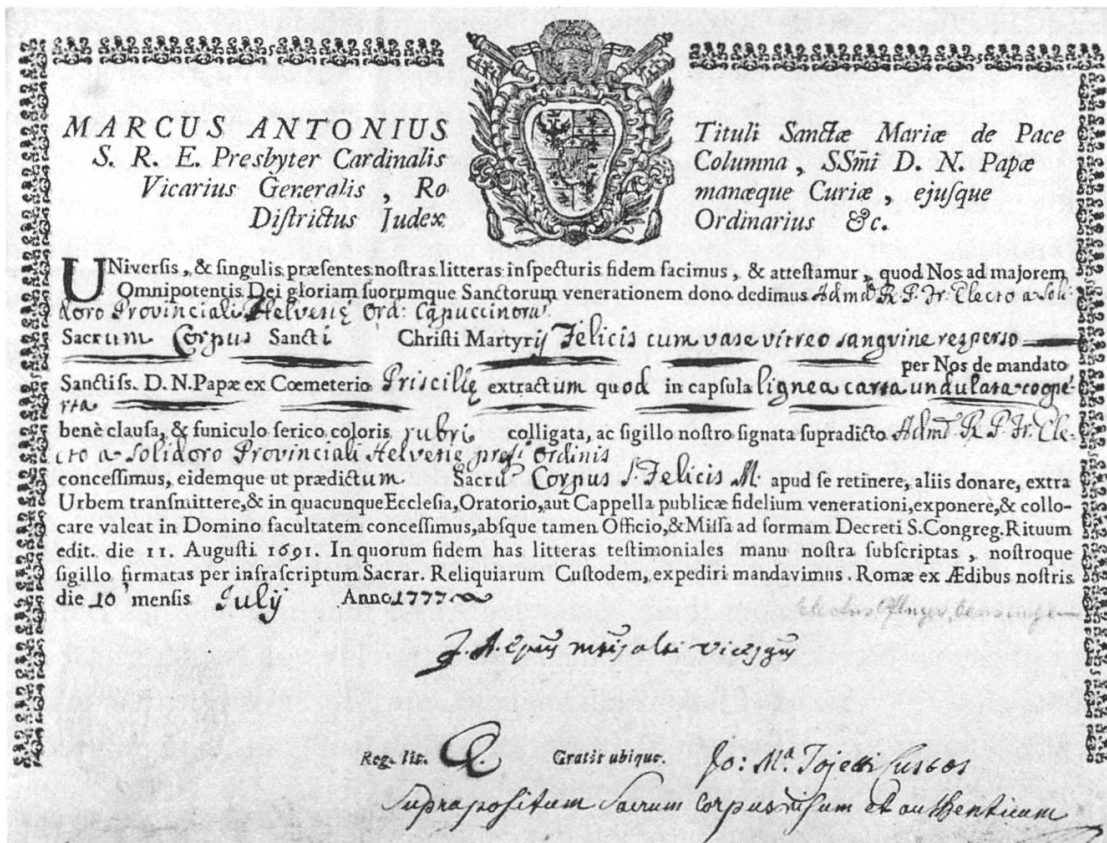 MARCUS ANTONIUS Tituli Sanctæ Mariæ de Pace
S. R. E. Presbyter Cardinalis Columna, SSm̄i D. N. Papæ
Vicarius Generalis, Ro manæque Curiæ, ejusque
Districtus Judex Ordinarius &c.
UNiversis, & singulis præsentes nostras litteras inspecturis fidem facimus, & attestamur, quod Nos ad majorem
Omnipotentis Dei gloriam suorumque Sanctorum venerationem dono dedimus Admd. R. P. Fr. Electo a Soli-
doro Provinciali Helvetię Ord: Capuccinoru
Sacrum Corpus Sancti Christi Martyrij Felicis cum vase vitreo sanguine resperso
per Nos de mandato
Sanctiss. D. N. Papæ ex Cœmeterio Priscillę extractum quod in capsula lignea carta undulata coope-
rta
benè clausa, & funiculo serico coloris rubri colligata, ac sigillo nostro signata supradicto Admd. R. P. Fr. Ele-
cto a Solidoro Provinciali Helvetię Ordinis
concessimus, eidemque ut prædictum Sacrū Corpus S. Felicis M. apud se retinere, aliis donare, extra
Urbem transmittere, & in quacunque Ecclesia, Oratorio, aut Cappella publicæ fidelium venerationi, exponere, & collo-
care valeat in Domino facultatem concessimus, absque tamen Officio, & Missa ad formam Decreti S. Congreg. Rituum
edit. die 11. Augusti 1691. In quorum fidem has litteras testimoniales manu nostra subscriptas, nostroque
sigillo firmatas per infrascriptum Sacrar. Reliquiarum Custodem, expediri mandavimus. Romæ ex Ædibus nostris
die 10 mensis Julij Anno 1777
Reg. lit. Gratis ubique. Jo: Ma. Tojetti Custos
Suprapositum Sacrum Corpus visum et authenticum